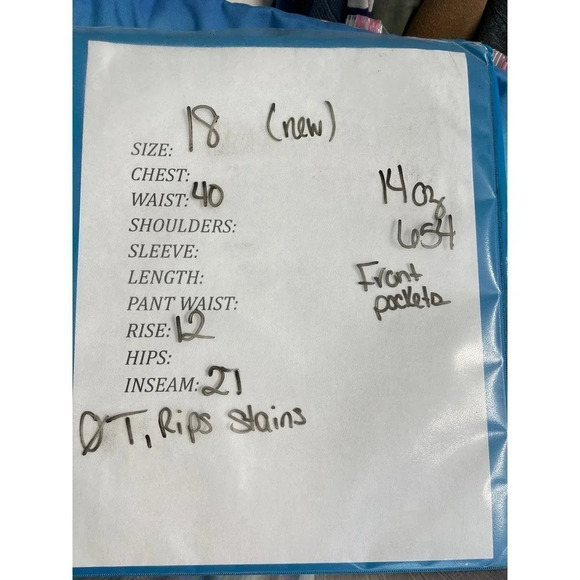 18 (new)
SIZE:
CHEST:
WAIST: 40
SHOULDERS:
SLEEVE:
LENGTH:
PANT WAIST:
RISE: 12
HIPS:
INSEAM: 21
ØT, Rips Stains
14 oz
654
Front
pockets